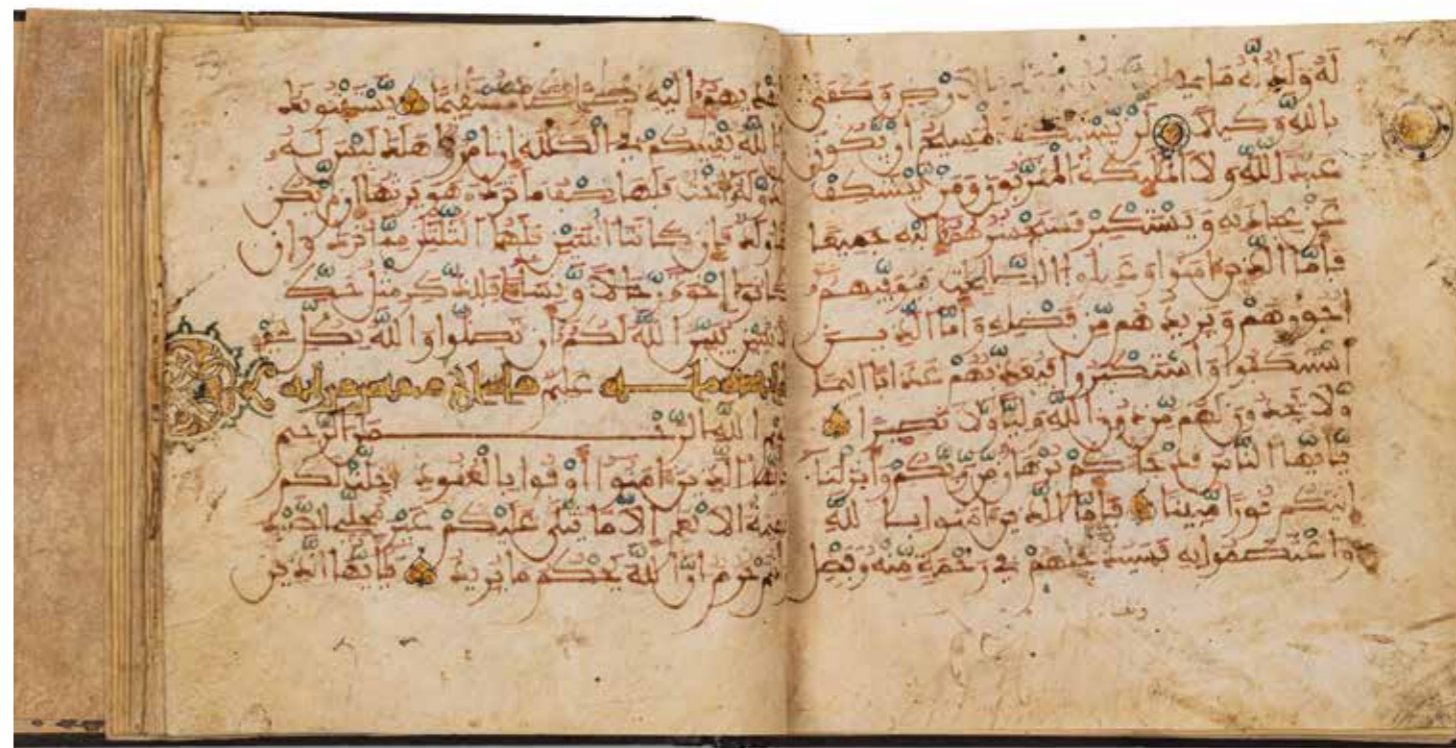 له ولد له ما في الارض وكفى
بالله وكيلا لن يستنكف المسيح ان يكون
عبدا لله ولا الملئكة المقربون ومن يستنكف
عن عبادته ويستكبر فسيحشرهم اليه جميعا
فاما الذين ءامنوا وعملوا الصلحت فيوفيهم
اجورهم ويزيدهم من فضله واما الذين
استنكفوا واستكبروا فيعذبهم عذابا اليما
ولا يجدون لهم من دون الله وليا ولا نصيرا
يايها الناس قد جاكم برهان من ربكم وانزلنا
اليكم نورا مبينا فاما الذين ءامنوا بالله
واعتصموا به فسيدخلهم في رحمة منه وفضل
ويهديهم اليه صرطا مستقيما يستفتونك
الله يفتيكم في الكللة ان امرؤا هلك ليس له
ولد وله اخت فلها نصف ما ترك وهو يرثها ان لم يكن
لها ولد فان كانتا اثنتين فلهما الثلثن مما ترك وان
كانوا اخوة رجالا ونساء فللذكر مثل حظ
الانثيين يبين الله لكم ان تضلوا والله بكل شيء
عليم
بسم الله الرحمن الرحيم
يايها الذين ءامنوا اوفوا بالعقود احلت لكم
بهيمة الانعم الا ما يتلى عليكم غير محلي الصيد
وانتم حرم ان الله يحكم ما يريد يايها الذين